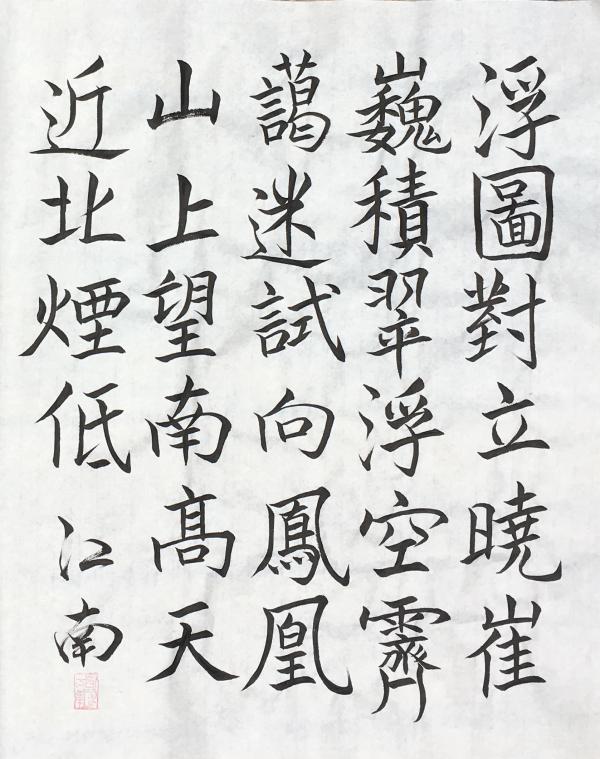 浮圖對立曉崔
巍積翠浮空霽
藹迷試向鳳凰
山上望南髙天
近北煙低 江南